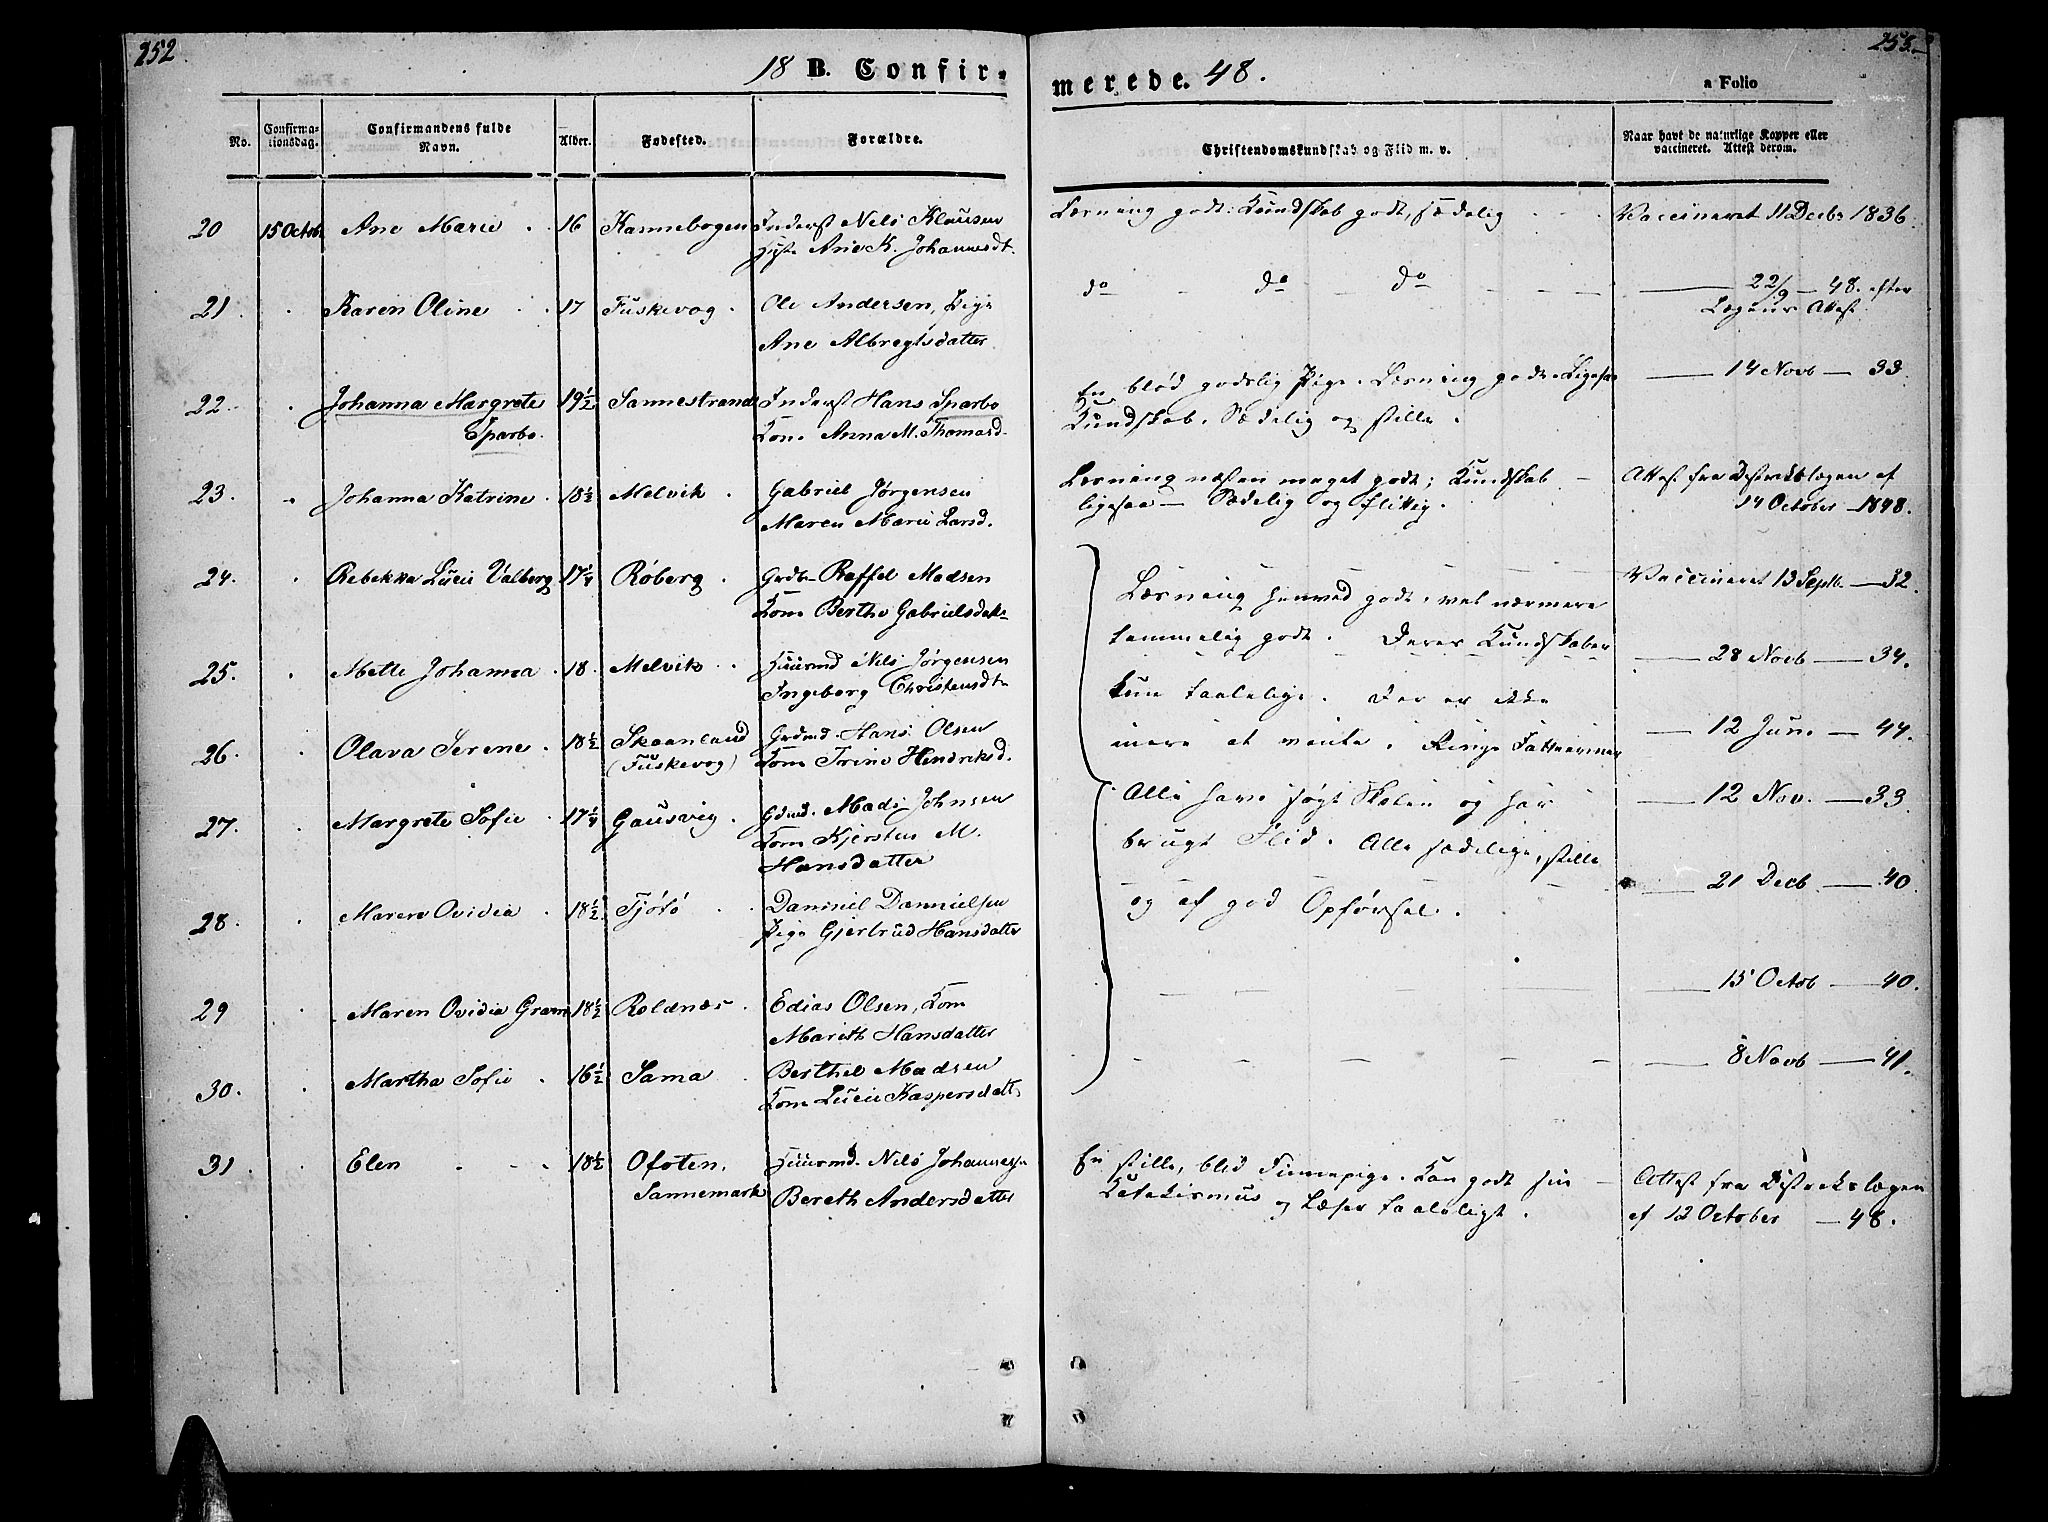 252
253
18 B. Confir-
merede. 48.
a Folio
No.
Confirma-
tionsdag.
Confirmandens fulde
Navn.
Alder.
Fødested.
Forældre.
Christendomskundskab og Flid m. v.
Naar havt de naturlige Kopper eller
vaccineret. Attest derom.
20 15 Octob. Ane Marie 16 Kannebogen Inderst Nils Klausen
Ane K. Johannesdt.
Læsning godt; Kundskab godt, sædelig
Vaccineret 11 Decbr 1836.
21. Karen Oline 17 Fuskevog. Ole Andersen, Pige
Ane Albregtsdatter
do do do
22/9 48. efter
Lægens Attest
22. Johanna Margrete 19½ Sannestrand Inderst Hans Sparbo
Sparbo. Kone Anna M. Thomasd.
En blød godslig Pige. Læsning godt. Ligesaa
Kundskab. Sædelig og stille.
14 Novb 33.
23. Johanna Katrine 18½ Melvik. Gabriel Jørgensen
Maren Marie Larsd.
Læsning næsten meget godt; Kundskab
ligesaa Sædelig og flittig.
Attest fra Distrikslægen af
14 October 1848.
24. Rebekka Lucie Valberg 17¼ Røberg. Grdbr Raffel Madsen
Kone Berthe Gabrielsdatr
Læsning henved godt, vel nærmere
Vaccineret 13 Septb. 32.
temmelig godt. Deres Kundskaber
25. Mette Johanna 18. Melvik. Huusmd Nils Jørgensen
Ingeborg Christensdtr
28 Novb 34.
kun taalelige. Der er ikke
26. Olava Serene. 18½ Skaanland Grdmd. Hans Olsen
(Fuskevog) Kone Trine Hendriksd.
mere at vente. Ringe Fatteevner
12 Juni 44.
27. Margrete Sofie 17¼ Gausvig. Gdmd. Mads Johnsen
Kone Kjersten M.
Hansdatter
Alle have søgt Skolen og har
brugt Flid. Alle sædelige, stille
og af god Opførsel.
12 Nov. 33
28. Maren Ovidia 18½ Tjøtø Danniel Dannielsen
Pige Gjertrud Hansdatter
21 Decb 40.
29 Maren Ovidia Gram 18½ Roldnæs. Edias Olsen, Kone
Mareth Hansdatter
15 Octob 40.
30. Martha Sofie 16½ Sama Berthel Madsen
Kone Lucie Kaspersdatt.
8 Novb 41.
31. Elen 18½ Ofoten, Huusmd. Nils Johannesn
Sannemark Bereth Andersdatter
En stille, blid Finnepige. Kan godt sin
Katekismus og Læser taaleligt.
Attest fra Distrekslægen
af 12 October 48.